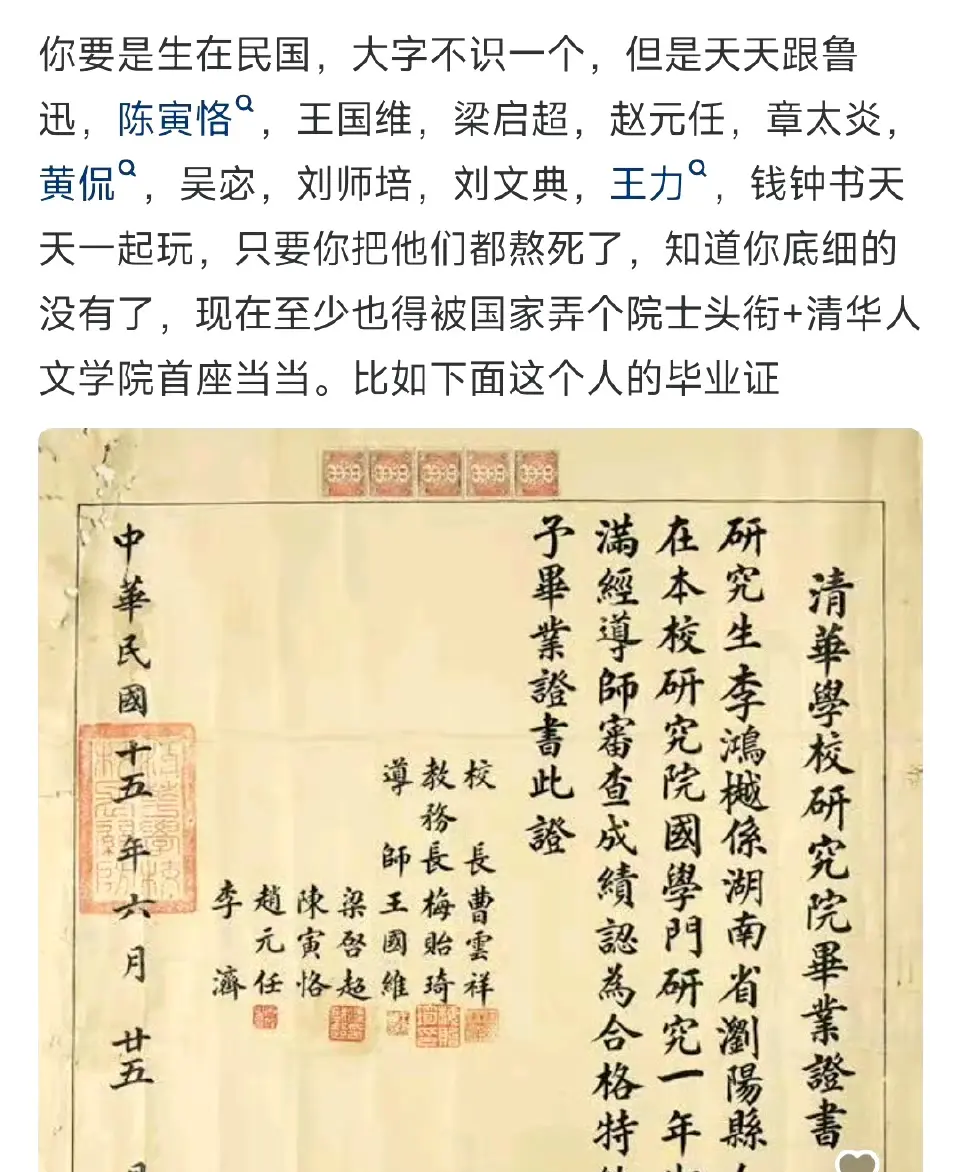 你要是生在民国，大字不识一个，但是天天跟鲁
迅，陈寅恪，王国维，梁启超，赵元任，章太炎，
黄侃，吴宓，刘师培，刘文典，王力，钱钟书天
天一起玩，只要你把他们都熬死了，知道你底细的
没有了，现在至少也得被国家弄个院士头衔+清华人
文学院首座当当。比如下面这个人的毕业证
清華學校研究院畢業證書
研究生李鴻樾係湖南省瀏陽縣
在本校研究院國學門研究一年
滿經導師審查成績認為合格特
予畢業證書此證
校長曹雲祥
教務長梅貽琦
導師王國維
梁啓超
陳寅恪
趙元任
李濟
中華民國十五年六月廿五